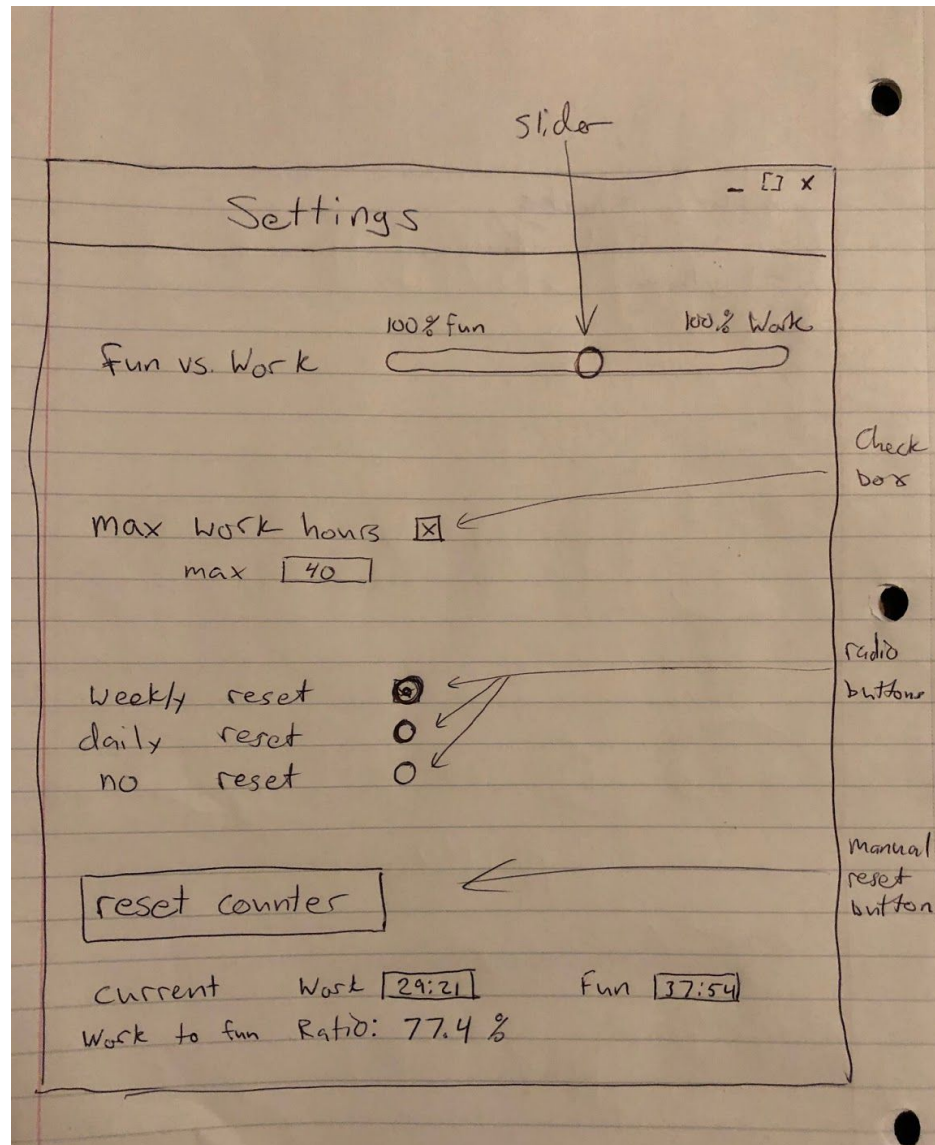 slider
Settings
- [] x
100% fun
100% Work
Fun vs. Work
Check
box
max work hours
max 40
radio
buttons
weekly reset
daily reset
no reset
manual
reset
button
reset counter
current Work 29:21 Fun 37:54
Work to fun Ratio: 77.4 %